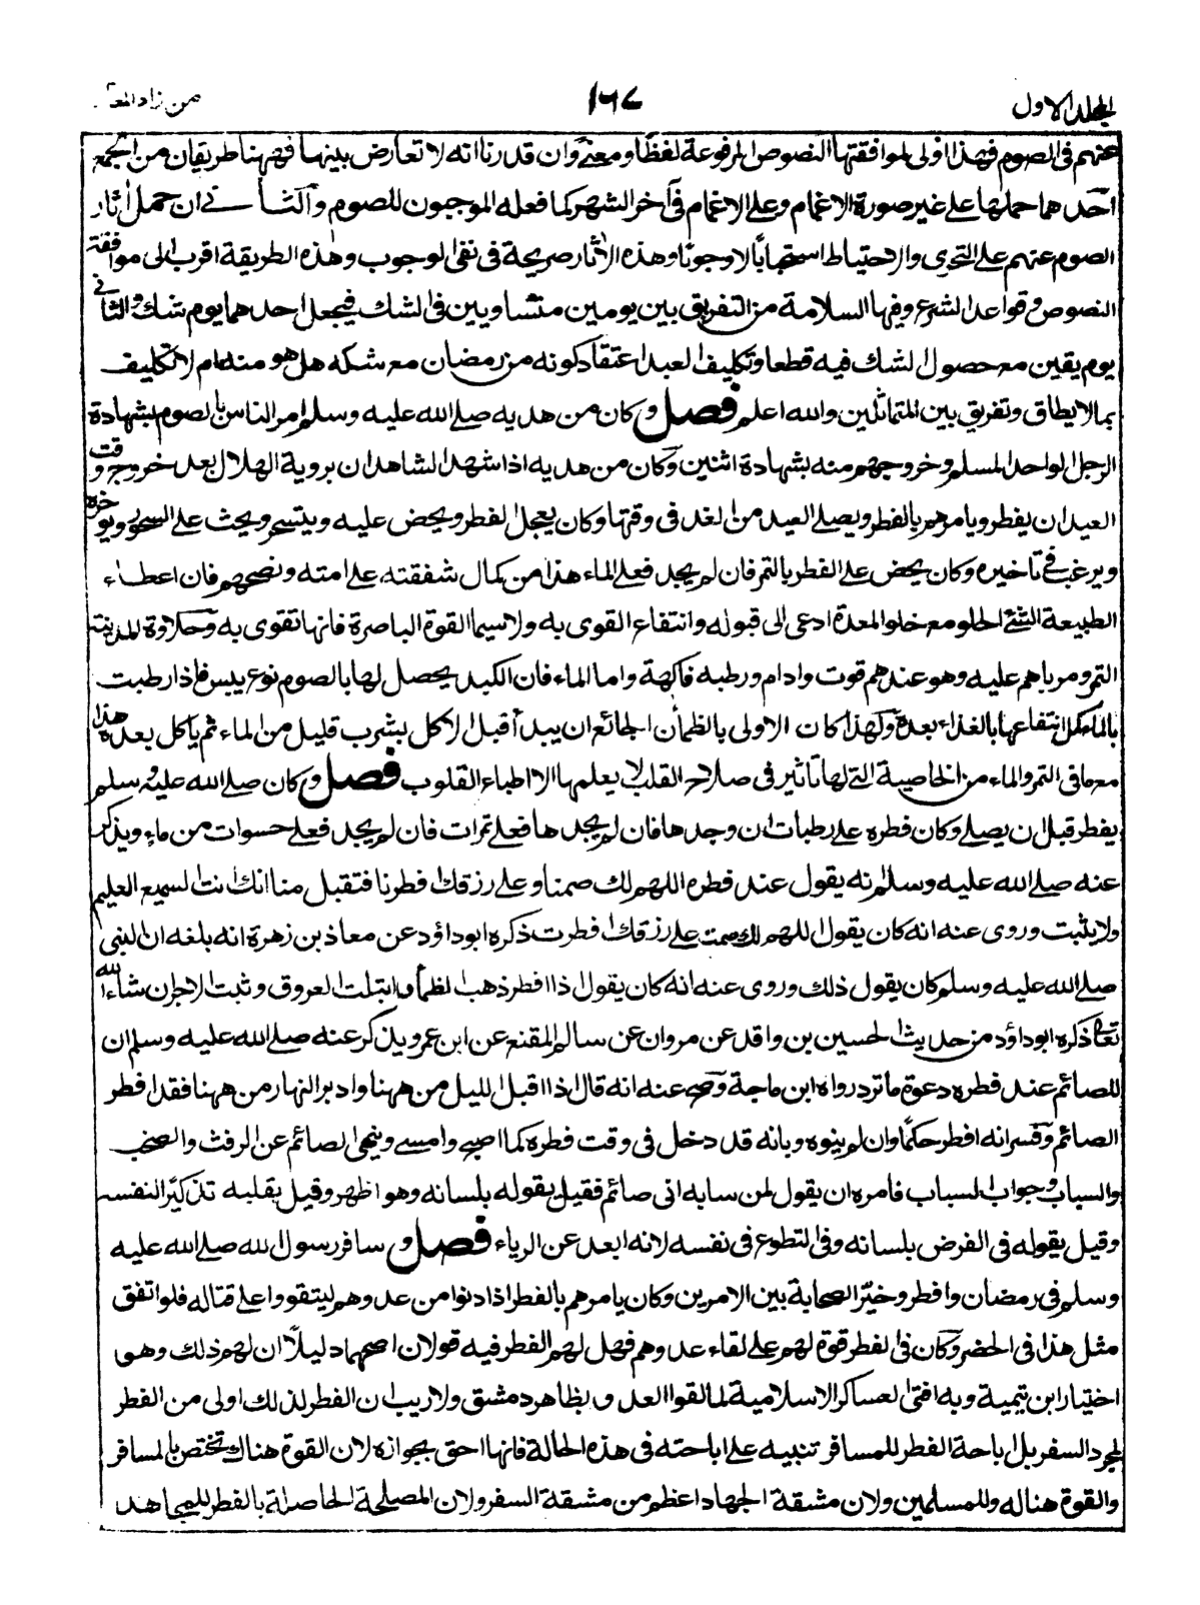 المجلد الاول ١٦٧ من زاد المعاد
عنهم فى الصوم فهذا اولى لموافقتها النصوص المرفوعة لفظا ومعنى وان قدر نا انه لا تعارض بينها فههنا طريقان من الجمع
احدهما حملها على غير صورة الاغمام وعلى الاغمام فى آخر الشهر كما فعله الموجبون للصوم والثانى ان حمل اثار
الصوم عنهم على التحرى والاحتياط استحبابا لا وجوبا وهذه الاثار صريحة فى نفى الوجوب وهذه الطريقة اقرب الى موافقة
النصوص وقواعد الشرع وفيها السلامة من التفريق بين يومين متساويين فى الشك فيجعل احدهما يوم شك والثانى
يوم يقين مع حصول الشك فيه قطعا وتكليف العبد اعتقاد كونه من رمضان مع شكه هل هو منه ام لا تكليف
بما لا يطاق وتفريق بين المتماثلين والله اعلم فصل وكان من هديه صلى الله عليه وسلم امر الناس بالصوم بشهادة
الرجل الواحد المسلم وخروجهم منه بشهادة اثنين وكان من هديه اذا شهد الشاهدان بروية الهلال بعد خروج وقت
العيد ان يفطر ويامرهم بالفطر ويصلى العيد من الغد فى وقتها وكان يعجل الفطر ويحض عليه ويتسحر ويحث على السحور ويوخره
ويرغب فى تاخيره وكان يحض على الفطر بالتمر فان لم يجد فعلى الماء هذا من كمال شفقته على امته ونصحهم فان اعطاء
الطبيعة الشئ الحلو مع خلو المعدة ادعى الى قبوله وانتفاع القوى به ولا سيما القوة الباصرة فانها تقوى به وحلاوة المدينة
التمر ومرباهم عليه وهو عندهم قوت وادام ورطبه فاكهة واما الماء فان الكبد يحصل لها بالصوم نوع يبس فاذا رطبت
بالماء كمل انتفاعها بالغذاء بعده ولهذا كان الاولى بالظمأن الجائع ان يبدأ قبل الاكل بشرب قليل من الماء ثم ياكل بعده هذا
مع ما فى التمر والماء من الخاصية التى لها تاثير فى صلاح القلب لا يعلمها الا اطباء القلوب فصل وكان صلى الله عليه وسلم
يفطر قبل ان يصلى وكان فطره على رطبات ان وجدها فان لم يجدها فعلى تمرات فان لم يجد فعلى حسوات من ماء ويذكر
عنه صلى الله عليه وسلم انه يقول عند فطره اللهم لك صمنا وعلى رزقك افطرنا فتقبل منا انك انت السميع العليم
ولا يثبت وروى عنه انه كان يقول اللهم لك صمت على رزقك افطرت ذكره ابو داؤد عن معاذ بن زهرة انه بلغه ان النبى
صلى الله عليه وسلم كان يقول ذلك وروى عنه انه كان يقول اذا افطر ذهب الظمأ وابتلت العروق وثبت الاجر ان شاء الله
تعالى ذكره ابو داؤد من حديث الحسين بن واقد عن مروان عن سالم المقنع عن ابن عمر ويذكر عنه صلى الله عليه وسلم ان
للصائم عند فطره دعوة ما ترد رواه ابن ماجة وصح عنه انه قال اذا اقبل الليل من ههنا وادبر النهار من ههنا فقد افطر
الصائم وفسر انه افطر حكما وان لم ينوه وبانه قد دخل فى وقت فطره كما اصبح وامسى وينهى الصائم عن الرفث والصخب
والسباب وجواب السباب فامره ان يقول لمن سابه انى صائم فقيل يقوله بلسانه وهو اظهر وقيل بقلبه تذكيرا لنفسه
وقيل يقوله فى الفرض بلسانه وفى التطوع فى نفسه لانه ابعد عن الرياء فصل و سافر رسول الله صلى الله عليه
وسلم فى رمضان وافطر وخير الصحابة بين الامرين وكان يامرهم بالفطر اذا دنوا من عدوهم ليتقووا على قتاله فلو اتفق
مثل هذا فى الحضر وكان فى الفطر قوة لهم على لقاء عدوهم فهل لهم الفطر فيه قولان اصحهما دليلا ان لهم ذلك وهو
اختيار ابن تيمية وبه افتى العساكر الاسلامية لما لقوا العدو بظاهر دمشق ولا ريب ان الفطر لذلك اولى من الفطر
لمجرد السفر بل اباحة الفطر للمسافر تنبيه على اباحته فى هذه الحالة فانها احق بجوازه لان القوة هناك تختص بالمسافر
والقوة هنا له وللمسلمين ولان مشقة الجهاد اعظم من مشقة السفر ولان المصلحة الحاصلة بالفطر للمجاهد